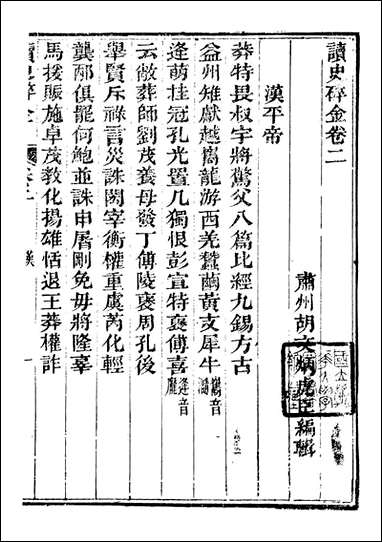 讀史碎金卷二
肅州胡文炳虎臣編輯
漢平帝
莽特畏叔宇將驚父八篇比經九錫方古
益州雉獻越巂龍游西羌蠶繭黃支犀牛
巂音
逢萌挂冠孔光置几獨恨彭宣特褒傅喜
逄音龐
云敞葬師劉茂養母發丁傅陵褒周孔後
舉賢斥祿言災誅閎宰衡權重虞芮化輕
龔邴俱寵何鮑並誅申屠剛免毋將隆辜
馬援賑施卓茂教化揚雄恬退王莽權詐
讀史碎金
漢
一